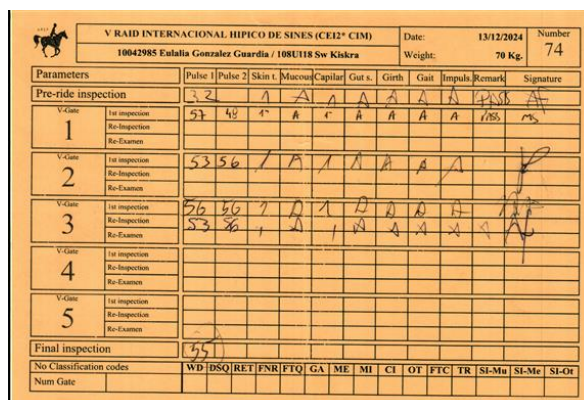 V RAID INTERNACIONAL HIPICO DE SINES (CEI2* CIM)
10042985 Eulalia Gonzalez Guardia / 108UI18 Sw Kiskra
Date: 13/12/2024
Weight: 70 Kg.
Number
74
Parameters Pulse 1 Pulse 2 Skin t. Mucous Capilar Gut s. Girth Gait Impuls. Remark Signature
Pre-ride inspection 32 1 A 1 A A A A PASS
V-Gate 1
1st inspection 57 48 1" A 1" A A A A PASS MS
Re-Inspection
Re-Examen
V-Gate 2
1st inspection 53 56 1 A 1 A A A A
Re-Inspection
Re-Examen
V-Gate 3
1st inspection 56 56 1 A 1 A A A A
Re-Inspection 53 56 1 A 1 A A A A A
Re-Examen
V-Gate 4
1st inspection
Re-Inspection
Re-Examen
V-Gate 5
1st inspection
Re-Inspection
Re-Examen
Final inspection 55
No Classification codes WD DSQ RET FNR FTQ GA ME MI CI OT FTC TR SI-Mu SI-Me SI-Ot
Num Gate